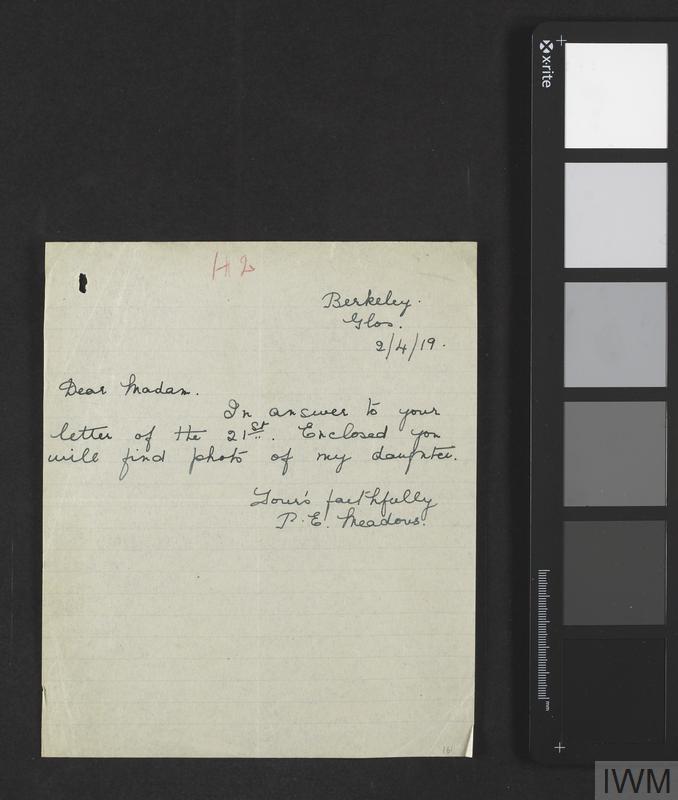 H2
Berkeley.
Glos.
2/4/19.
Dear Madam.
In answer to your
letter of the 21st. Enclosed you
will find photo of my daughter.
Your's faithfully
P. E. Meadows.
x-rite
mm
IWM